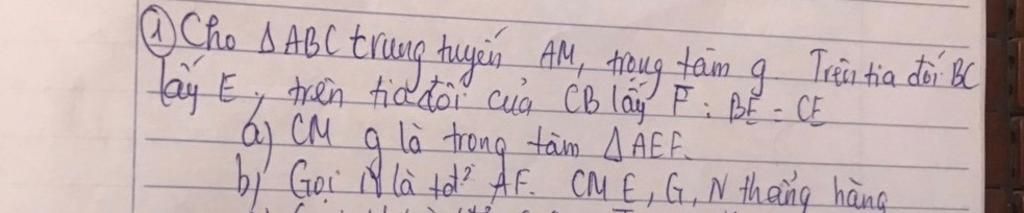 ① Cho ΔABC trung tuyến AM, trọng tâm g Trên tia đối BC
lấy E, trên tia đối của CB lấy F : BE = CE
a) CM g là trong tâm ΔAEF.
b) Gọi N là tđ² AF. CM E, G, N thẳng hàng